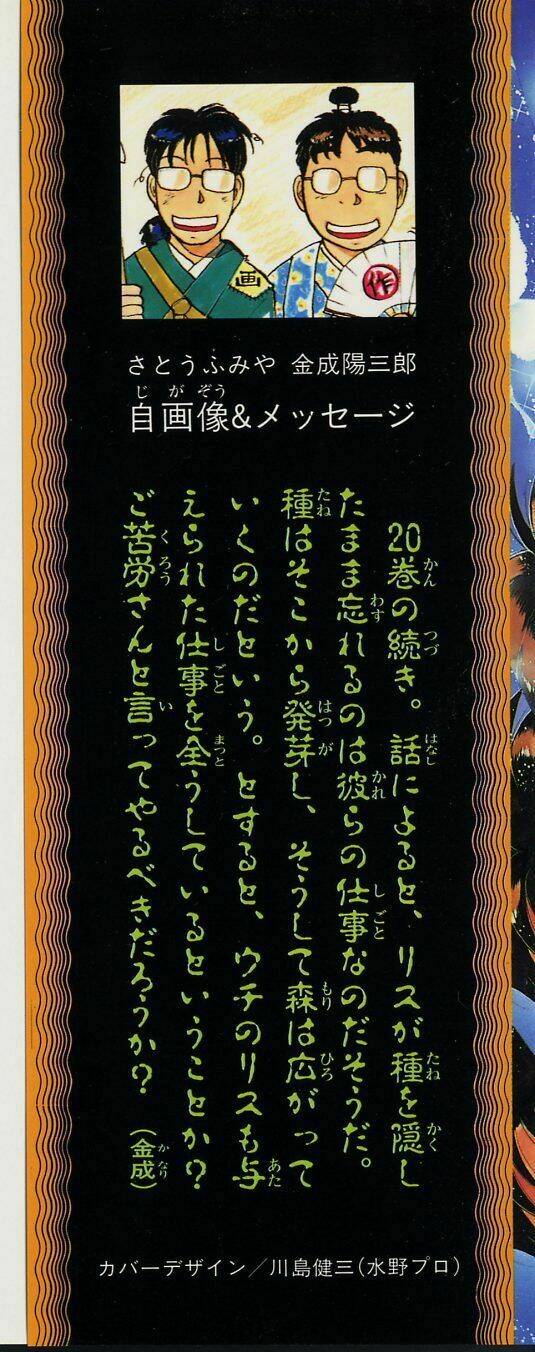 画
作
さとうふみや 金成陽三郎
じがぞう
自画像&メッセージ
20巻の続き。話によると、リスが種を隠し
たまま忘れるのは彼らの仕事なのだそうだ。
種はそこから発芽し、そうして森は広がって
いくのだという。とすると、ウチのリスも与
えられた仕事を全うしているということか?
ご苦労さんと言ってやるべきだろうか? (金成)
カバーデザイン/川島健三(水野プロ)